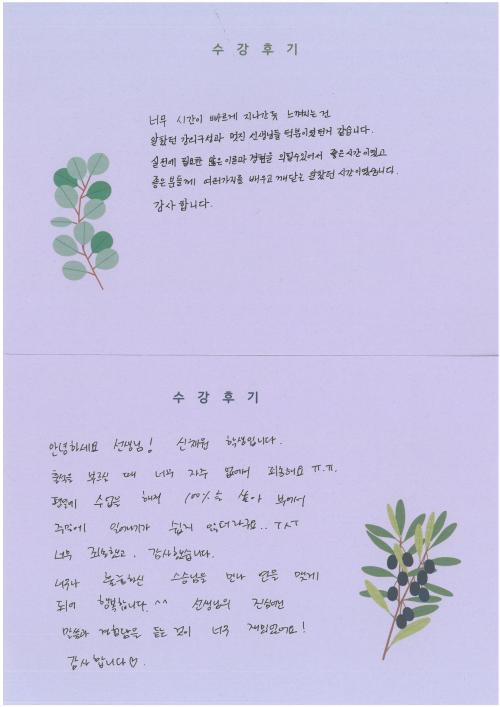 수강후기
너무 시간이 빠르게 지나간듯 느껴지는건
알찼던 강의구성과 멋진 선생님들 덕분이였던거 같습니다.
실전에 필요한 많은 이론과 경험을 의 있어서 좋은시간이였고
좋은분들께 여러가지를 배우고 깨닫는 알찼던 시간이였습니다.
감사합니다.
수강후기
안녕하세요 선생님! 신채원 학생입니다.
출석을 부르실 때 너무 자주 없어서 죄송해요 ㅠ.ㅠ.
평일에 수업을 해서 100%을 쏟아 부어서
주말에 일어나기가 쉽지 않더라구요.. ㅜㅅㅜ
너무 죄송했고, 감사했습니다.
너무나 훌륭하신 스승님을 만나 연을 맺게
되어 행복합니다. ^^ 선생님의 진심어린
말씀과 경험담을 듣는 것이 너무 재밌었어요!
감사합니다♡.